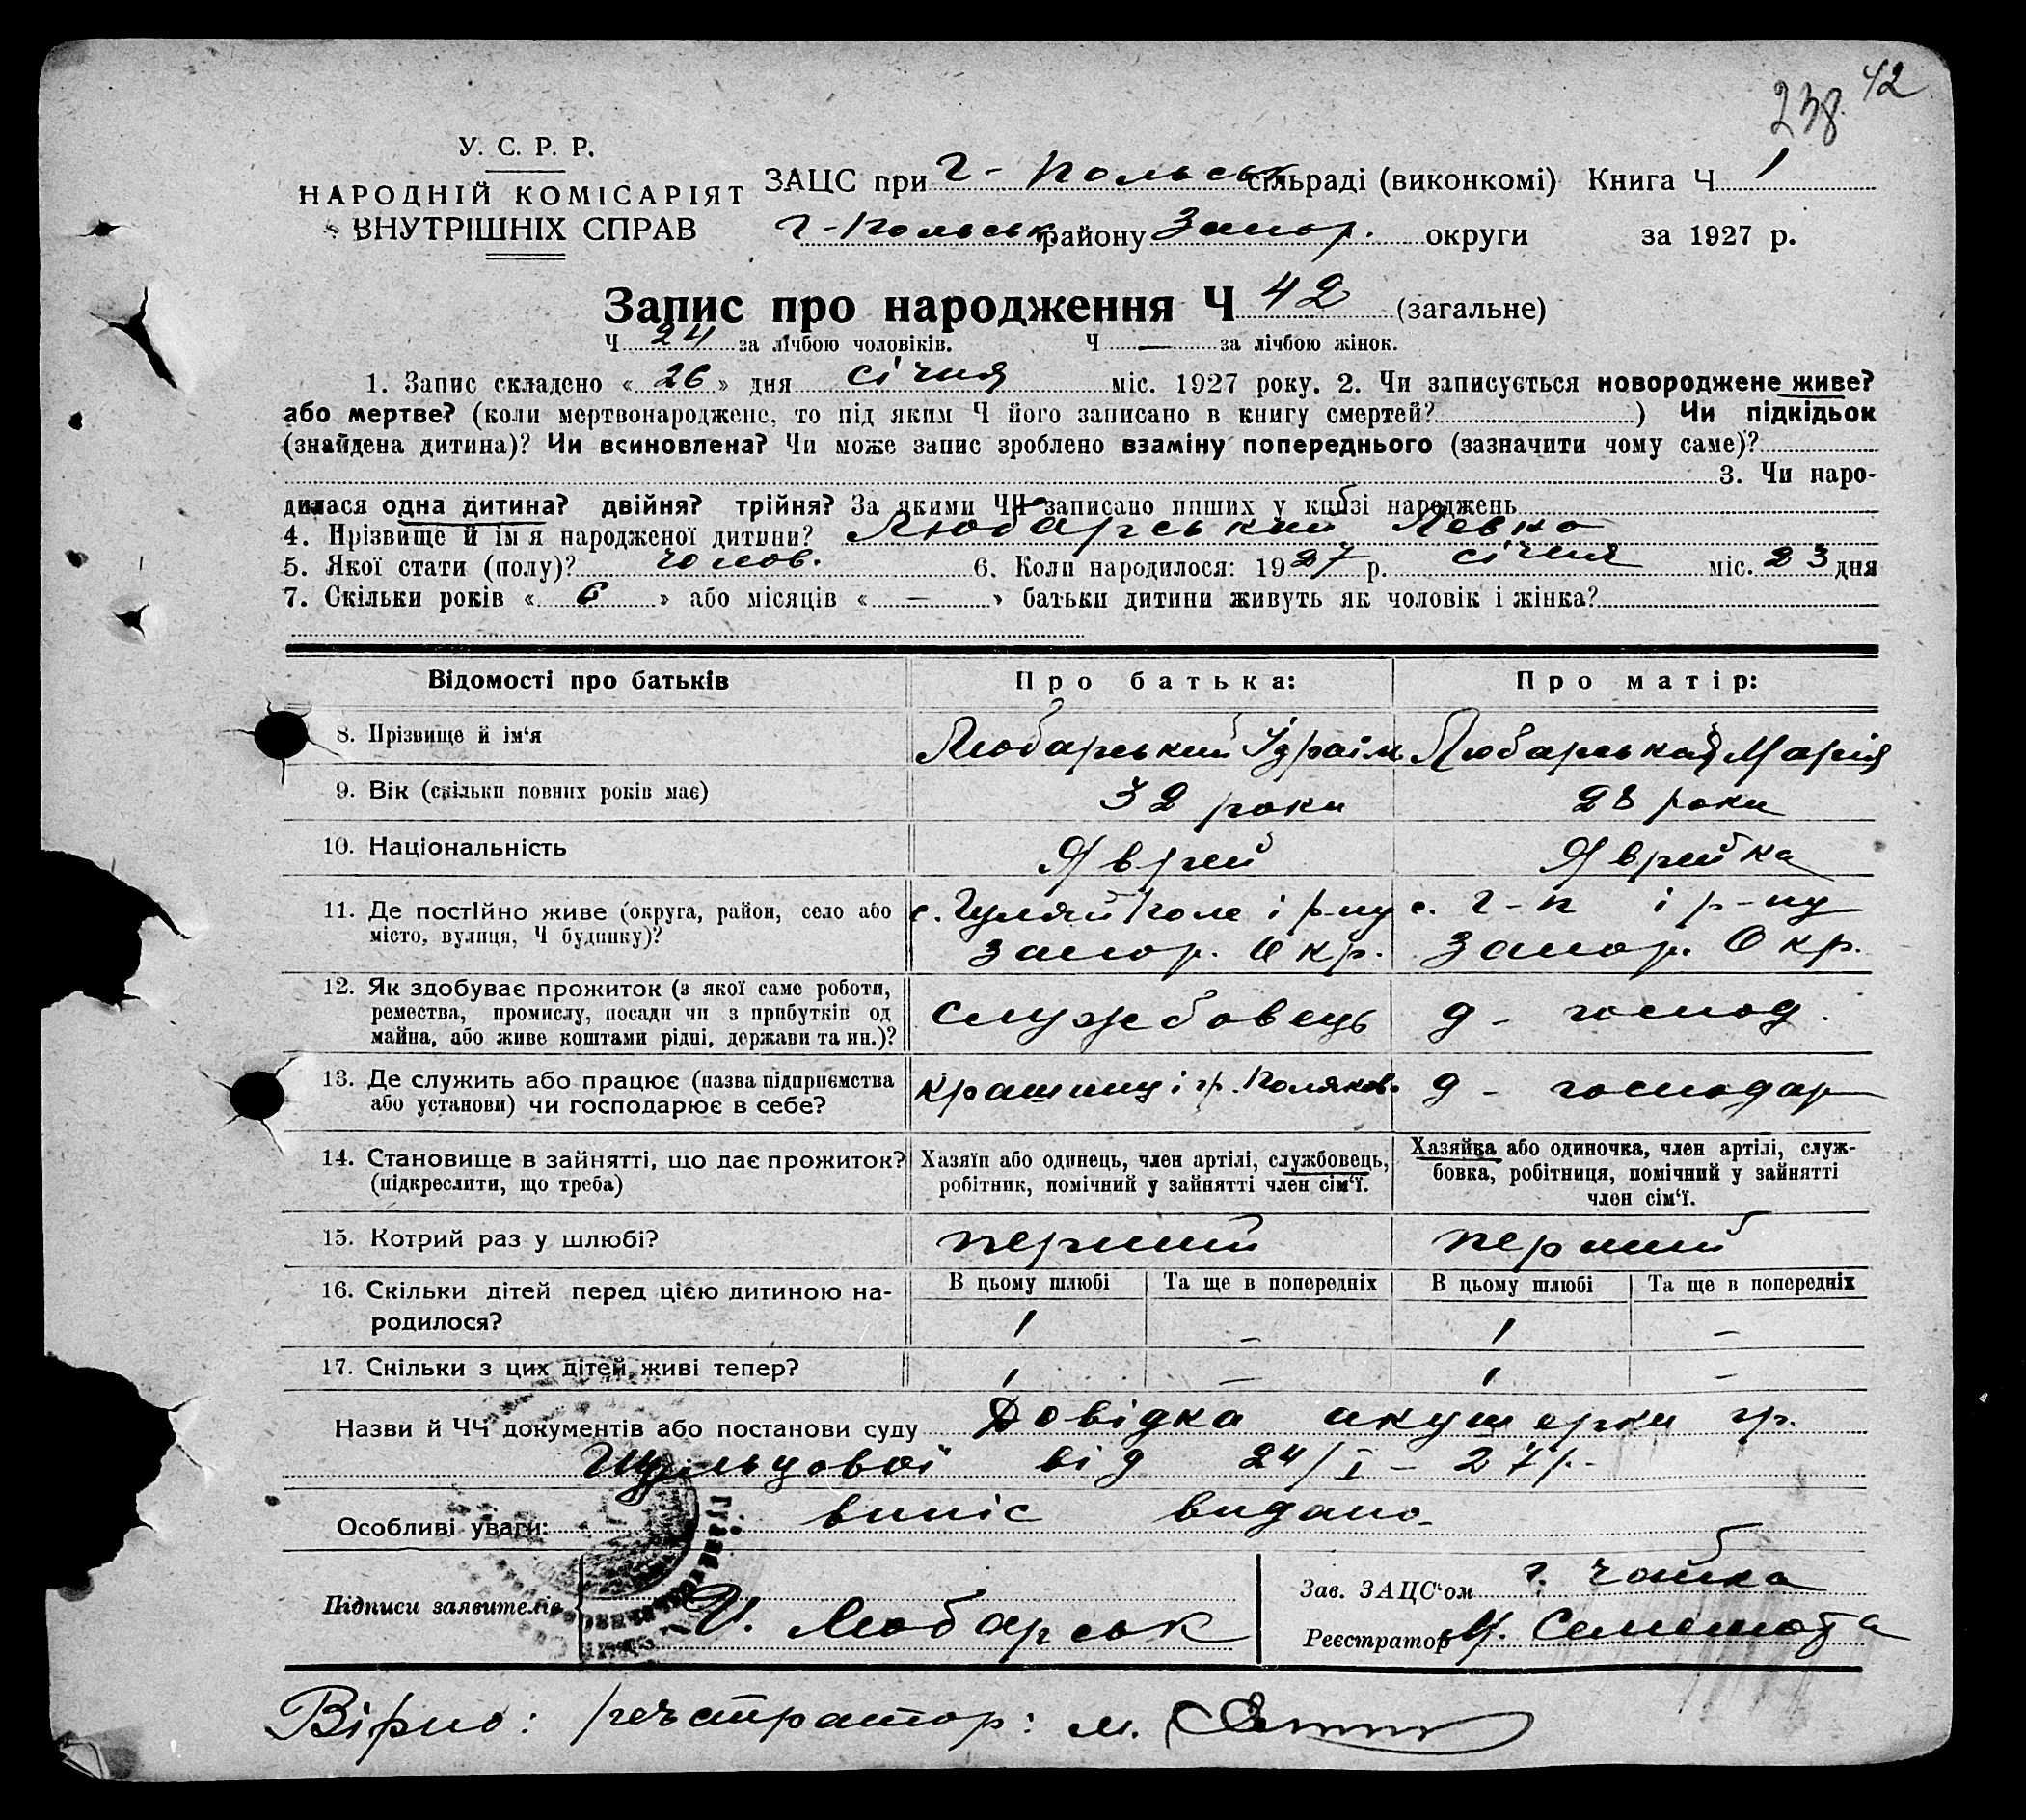 42
238
У. С. Р. Р.
НАРОДНІЙ КОМІСАРІЯТ
ВНУТРІШНІХ СПРАВ
ЗАЦС при Г-Польськ сільраді (виконкомі) Книга Ч 1
Г-Польськ району Запор. округи за 1927 р.
Запис про народження Ч 42 (загальне)
Ч 24 за лічбою чоловіків. Ч — за лічбою жінок.
1. Запис складено « 26 » дня січня міс. 1927 року. 2. Чи записується новороджене живе?
або мертве? (коли мертвонароджене, то під яким Ч його записано в книгу смертей? ) Чи підкідьок
(знайдена дитина)? Чи всиновлена? Чи може запис зроблено взаміну попереднього (зазначити чому саме)?
3. Чи наро-
дилася одна дитина? двійня? трійня? За якими ЧЧ записано инших у книзі народжень
4. Прізвище й ім'я народженої дитини? Любарський Левко
5. Якої стати (полу)? чолов. 6. Коли народилося: 1927 р. січня міс. 23 дня
7. Скільки років « 6 » або місяців « — » батьки дитини живуть як чоловік і жінка?
Відомості про батьків Про батька: Про матір:
8. Прізвище й ім'я Любарський Любарська Марія
9. Вік (скільки повних років має) 32 роки 28 роки
10. Національність Яврей Яврейка
11. Де постійно живе (округа, район, село або с. Гуляй Поле і р-ну с. Г-П і р-ну
місто, вулиця, Ч будинку)? Запор. Окр. Запор. Окр.
12. Як здобуває прожиток (з якої саме роботи,
ремества, промислу, посади чи з прибутків од службовець д-господ.
майна, або живе коштами рідні, держави та ин.)?
13. Де служить або працює (назва підприємства гр. Поляков. д-господар
або установи) чи господарює в себе?
14. Становище в зайнятті, що дає прожиток? Хазяїн або одинець, член артілі, службовець, Хазяйка або одиночка, член артілі, служ-
(підкреслити, що треба) робітник, помічний у зайнятті член сім'ї. бовка, робітниця, помічний у зайнятті
член сім'ї.
15. Котрий раз у шлюбі? перший перший
16. Скільки дітей перед цією дитиною на- В цьому шлюбі Та ще в попередніх В цьому шлюбі Та ще в попередніх
родилося? 1 — 1 —
17. Скільки з цих дітей живі тепер? 1 — 1 —
Назви й ЧЧ документів або постанови суду Довідка акушерки гр.
Шульцової від 24/I-27р.
Особливі уваги: випис видано
Підписи заявителів И. Любарськ
Зав. ЗАЦС'ом Г. Чайка
Реєстратор М.
Вірно: реєстратор: М.